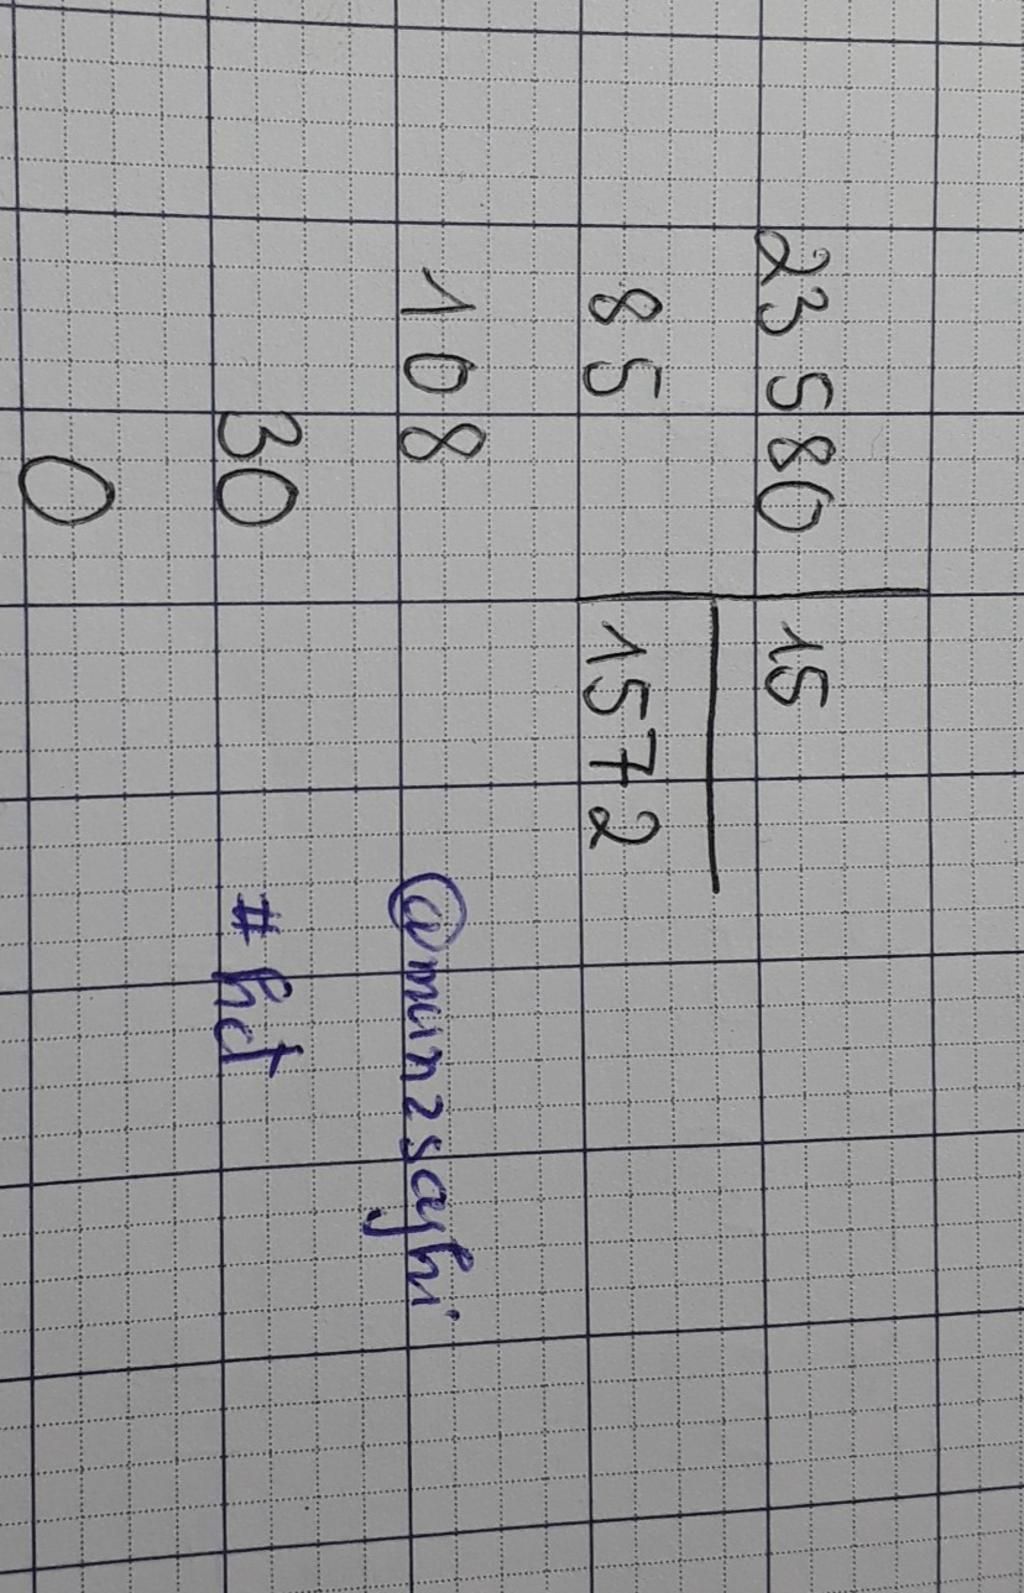 23 580 | 15
85 | 1572
108
30
0
@munzsayhi
#hd